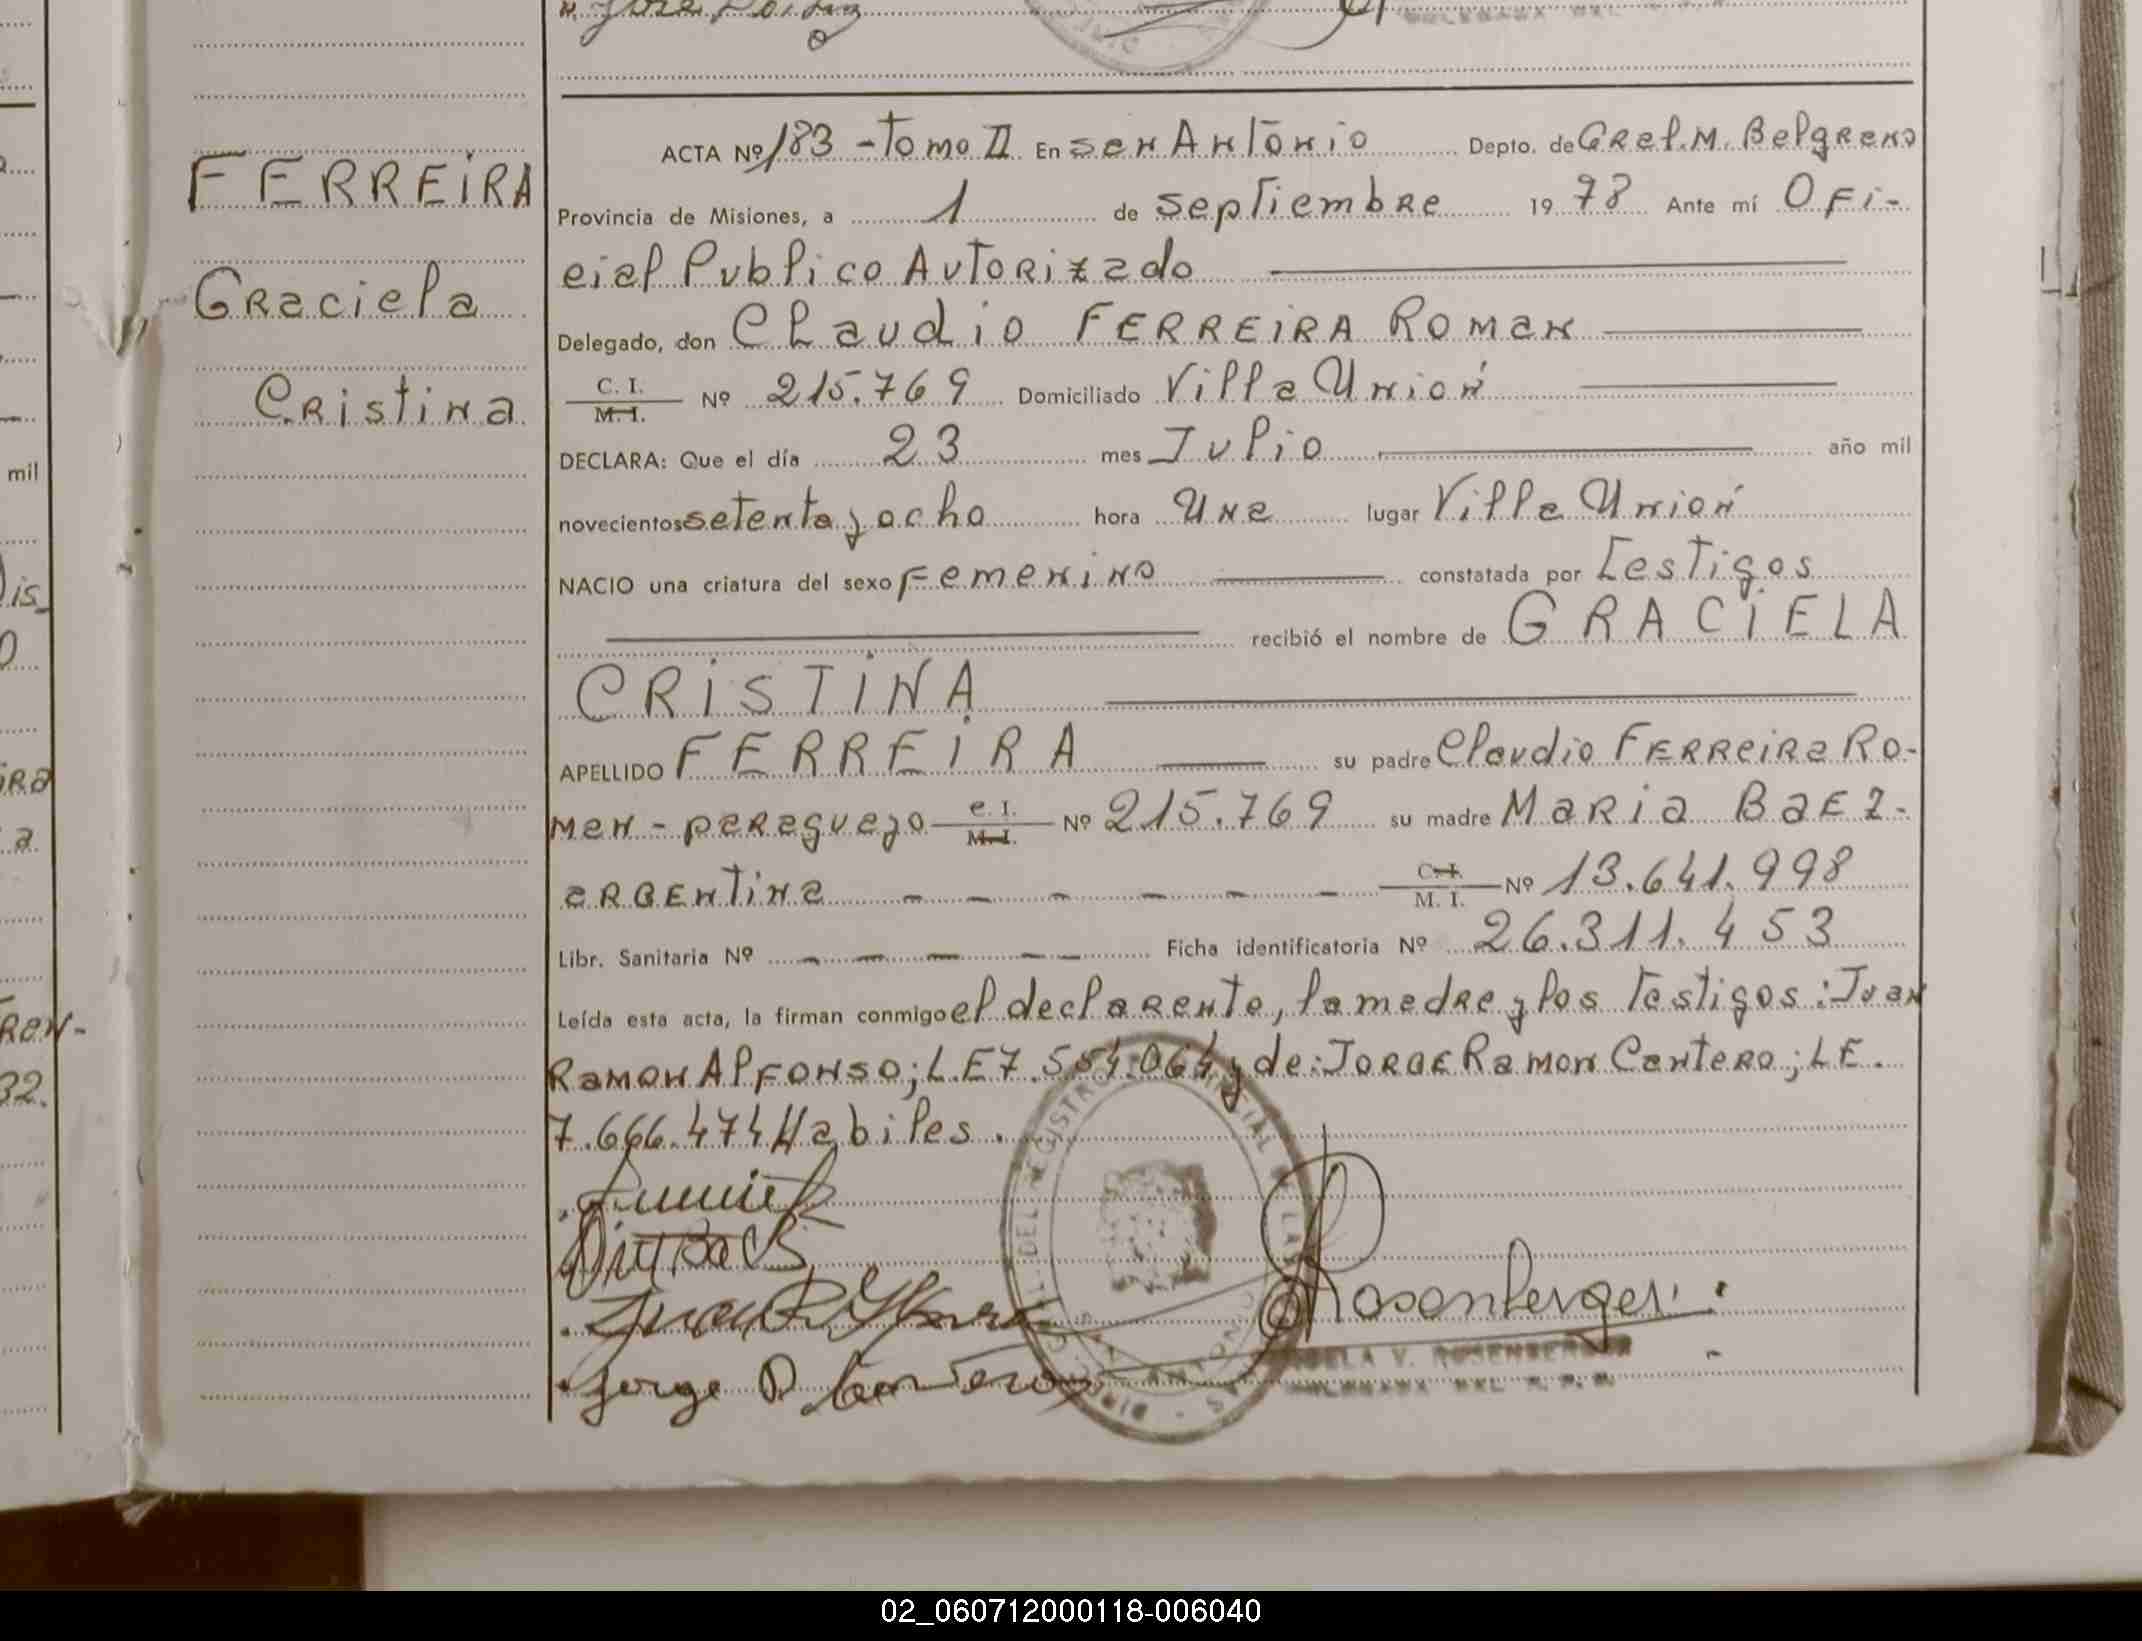 FERREIRA
Graciela
Cristina
ACTA Nº 183 - Tomo II En San Antonio Depto. de Gral. M. Belgrano
Provincia de Misiones, a 1 de septiembre 1978 Ante mí Ofi-
cial Publico Autorizado
Delegado, don Claudio FERREIRA Roman
C. I.
M. I. Nº 215.769 Domiciliado Villa Unión
DECLARA: Que el día 23 mes Julio año mil
novecientos setenta y ocho hora Una lugar Villa Unión
NACIO una criatura del sexo Femenino constatada por Testigos
recibió el nombre de GRACIELA
CRISTINA
APELLIDO FERREIRA su padre Claudio FERREIRA Ro-
man - paraguayo C. I.
M. I. Nº 215.769 su madre Maria BAEZ-
argentina - - - - - - C. I.
M. I. Nº 13.641.998
Libr. Sanitaria Nº - - - - - Ficha identificatoria Nº 26.311.453
Leída esta acta, la firman conmigo el declarante, la madre y los testigos: Juan
Ramon Alfonso; L.E 7.554.064 y de: Jorge Ramon Cantero; L.E.
7.666.474 Habiles.
Jorge R. Cantero
Rosenberger
V. ROSENBERGER
mil
02_060712000118-006040